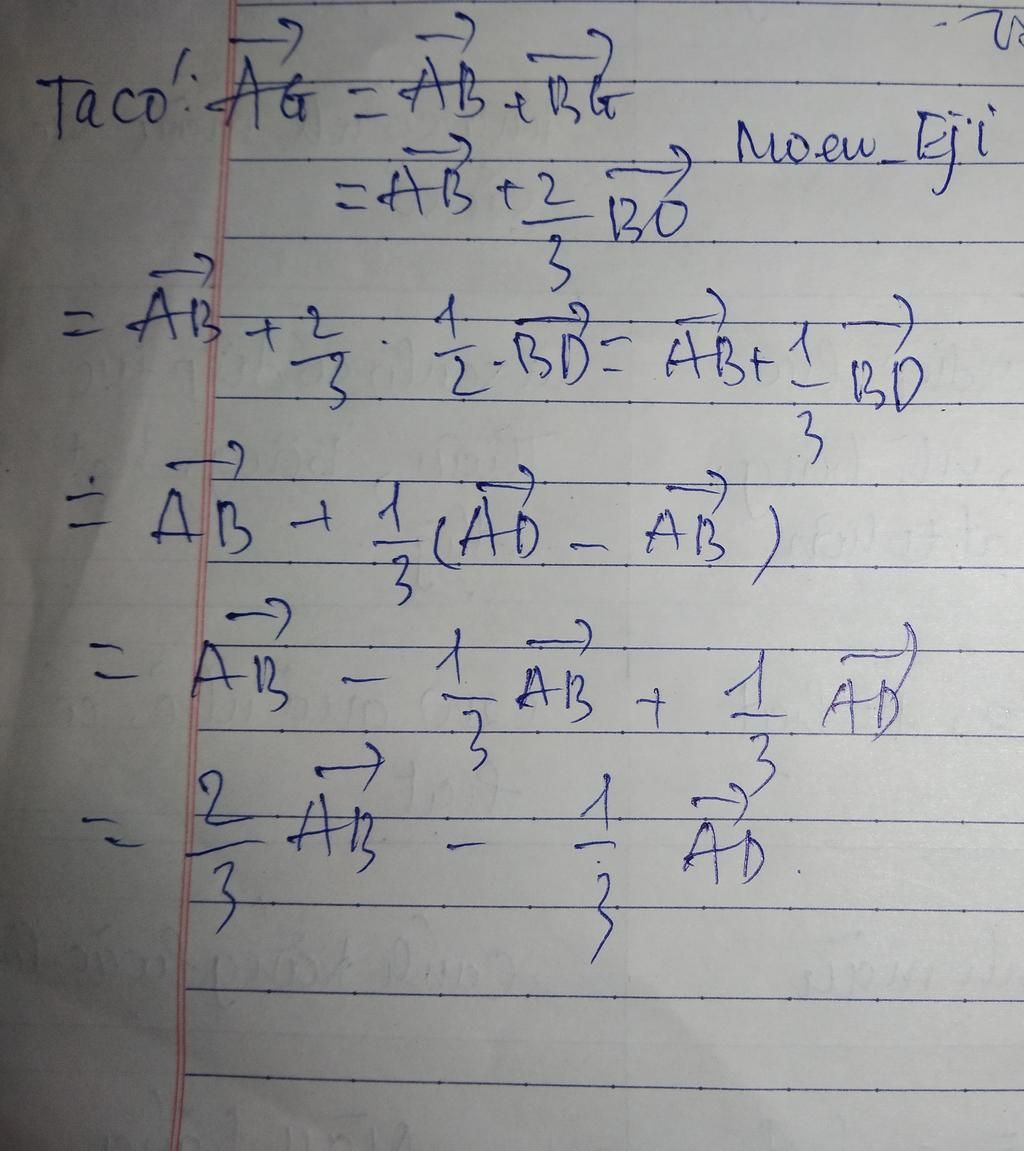 Ta có: $\overrightarrow{AG} = \overrightarrow{AB} + \overrightarrow{BG}$
Moew_Eji
$= \overrightarrow{AB} + \frac{2}{3} \overrightarrow{BO}$
$= \overrightarrow{AB} + \frac{2}{3} \cdot \frac{1}{2} \cdot \overrightarrow{BD} = \overrightarrow{AB} + \frac{1}{3} \overrightarrow{BD}$
$= \overrightarrow{AB} + \frac{1}{3} (\overrightarrow{AD} - \overrightarrow{AB})$
$= \overrightarrow{AB} - \frac{1}{3} \overrightarrow{AB} + \frac{1}{3} \overrightarrow{AD}$
$= \frac{2}{3} \overrightarrow{AB} - \frac{1}{3} \overrightarrow{AD}.$